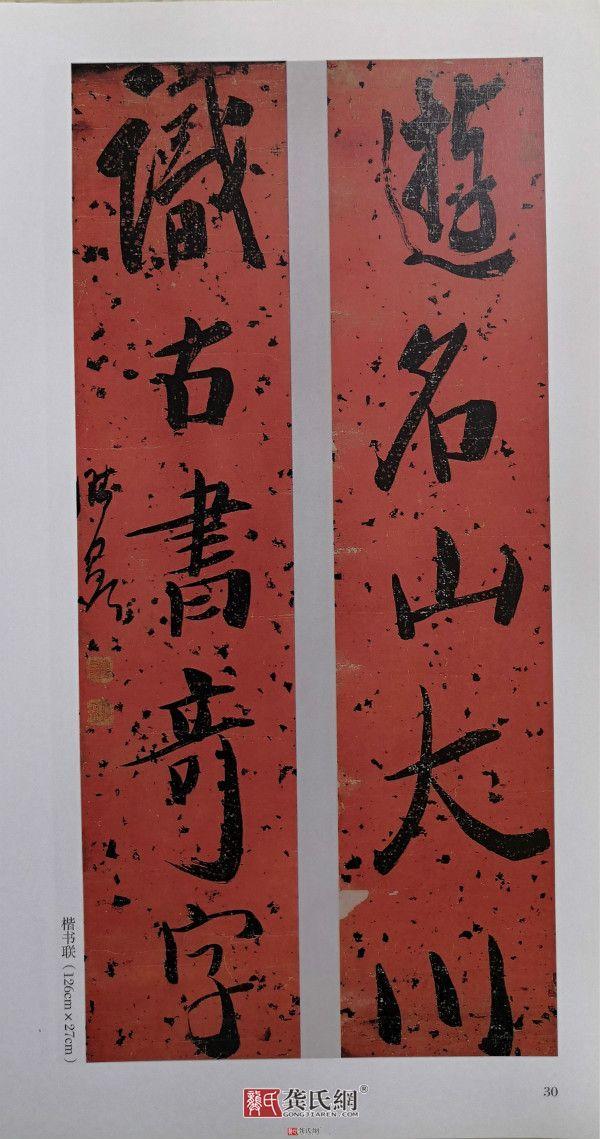 遊名山大川
識古書奇字
楷书联（126cm×27cm）
30
龔氏 龚氏網®
GONGJIAREN.COM
龔氏 龚氏網